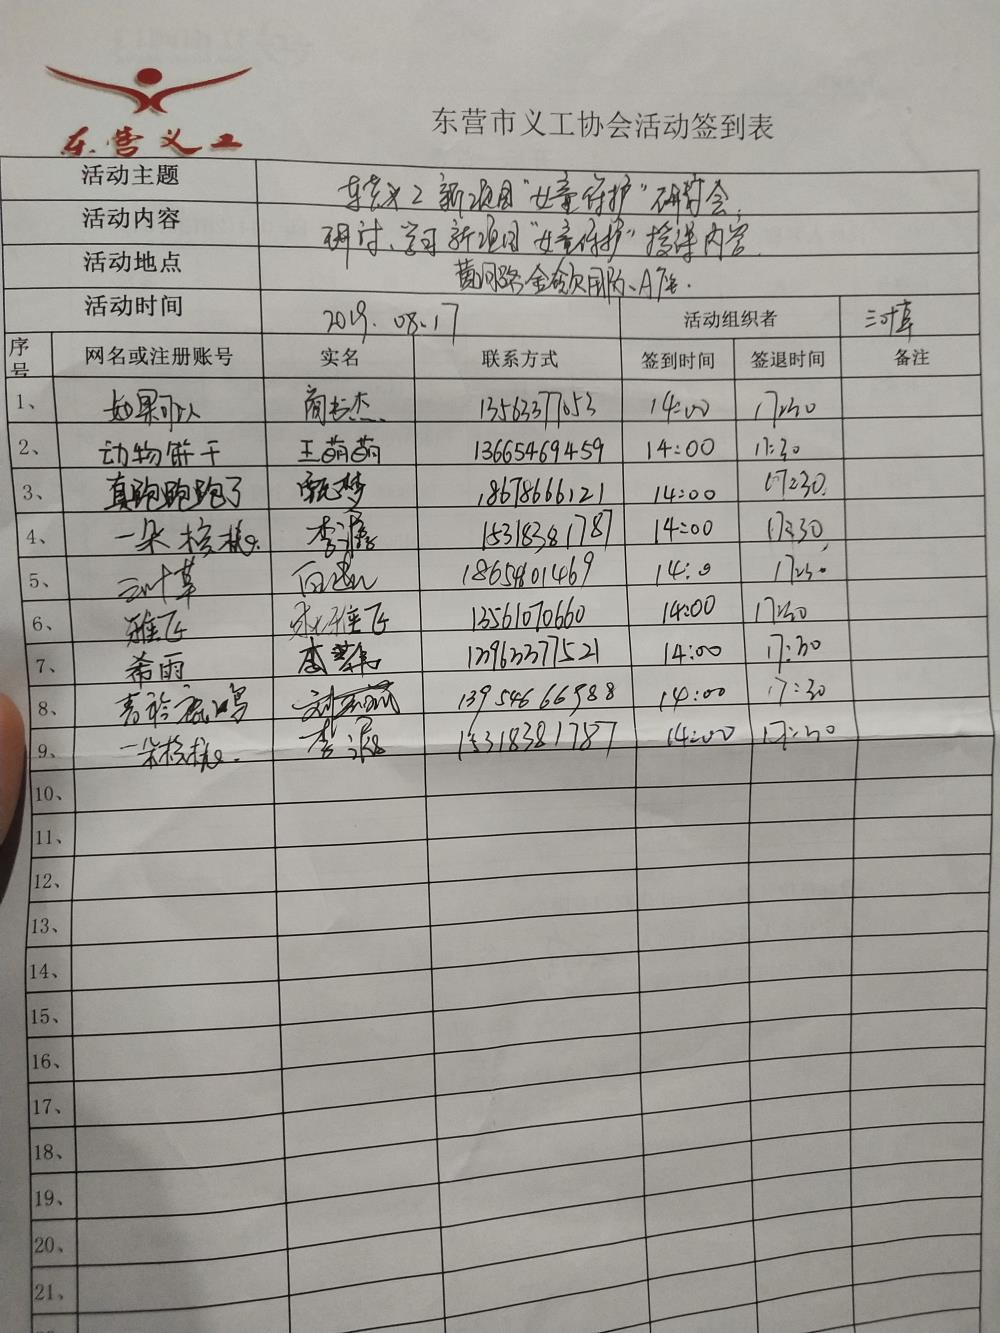 东营义工
东营市义工协会活动签到表
活动主题 东营义工新项目"女童保护"研讨会;
活动内容 研讨、学习新项目"女童保护"授课内容
活动地点 黄河路金领国际A座.
活动时间 2019.08.17 活动组织者 三叶草
序号 网名或注册账号 实名 联系方式 签到时间 签退时间 备注
1、 如果可以 13563377053 14:00 17:30
2、 动物饼干 王萌萌 13665469459 14:00 17:30
3、 真跑跑跑了 甄梦 18678666121 14:00 17:30
4、 一朵核桃 李 15318381787 14:00 17:30
5、 三叶草 18654801469 14:0 17:30
6、 雅飞 雅飞 13561070660 14:00 17:30
7、 希雨 李 13963377521 14:00 17:30
8、 青衿鹿鸣 刘 13954666988 14:00 17:30
9、 一朵核桃 李 15318381787 14:00 17:30
10、
11、
12、
13、
14、
15、
16、
17、
18、
19、
20、
21、